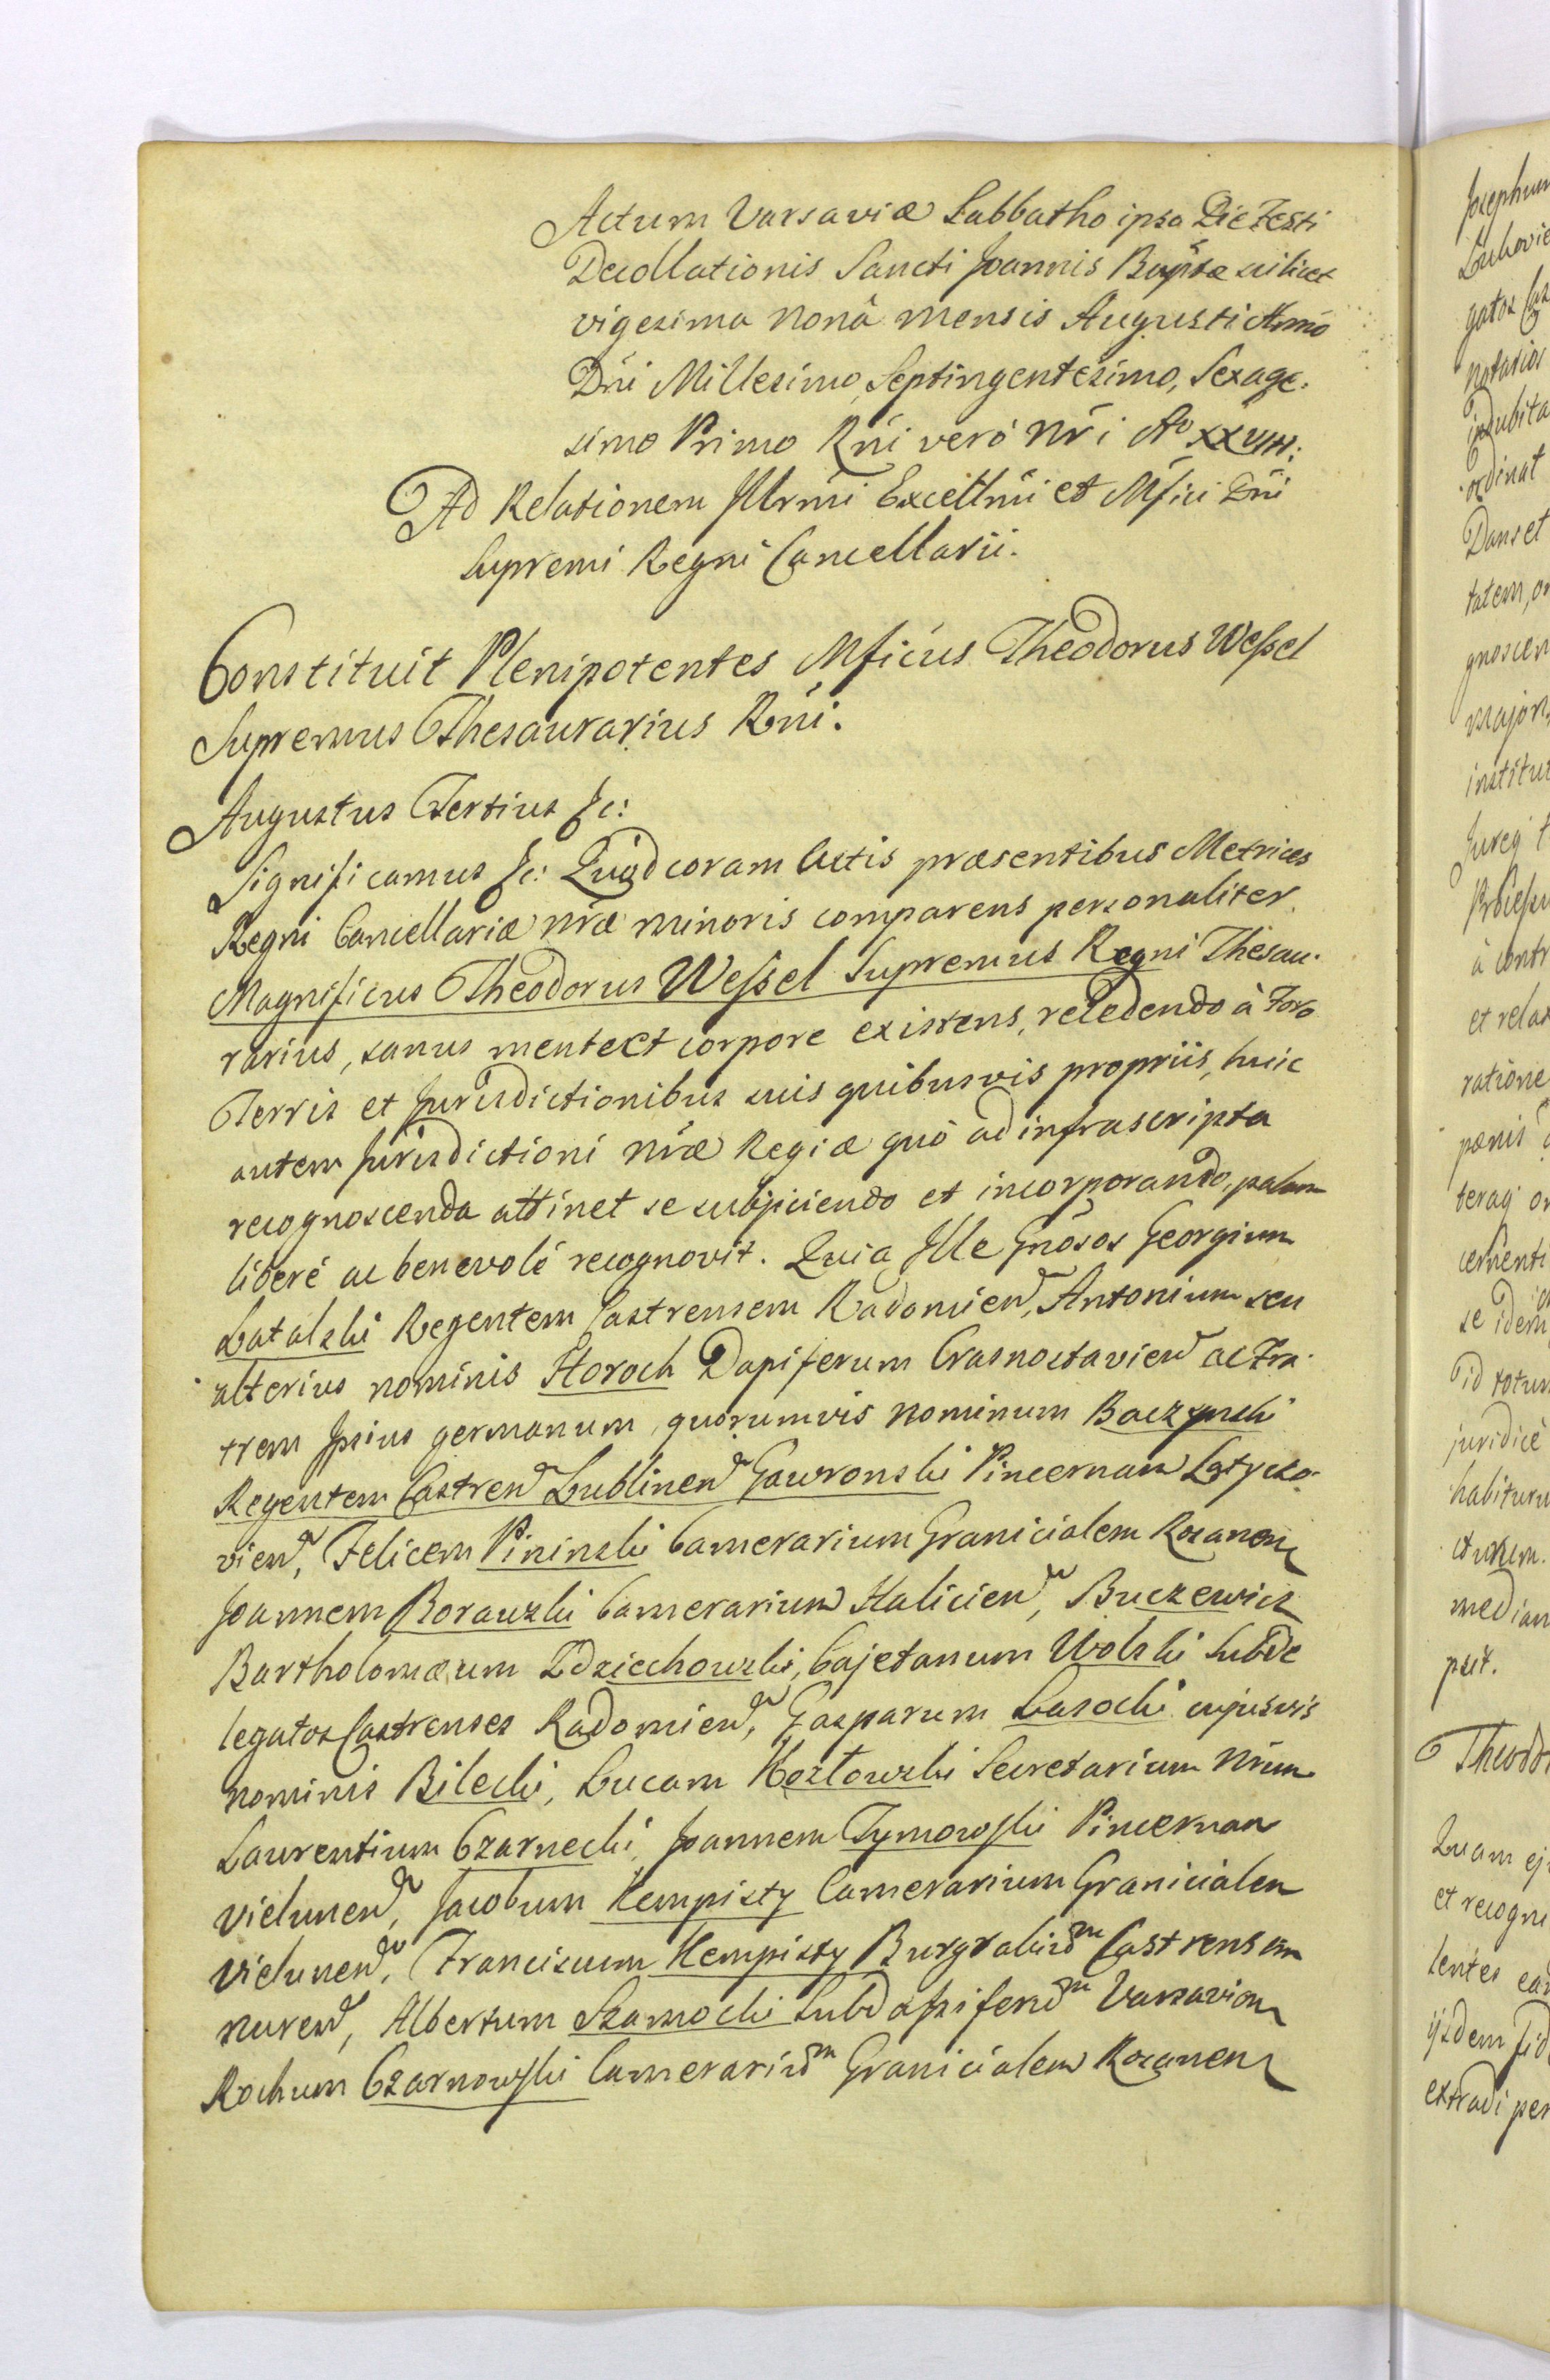 Actum Varsaviæ Sabbatho ipsa Die Festi
Decollationis Sancti Joannis Baptæ scilicet
vigesima nonâ mensis Augusti Anno
Dni Millesimo, Septingentesimo, Sexage-
simo Primo Rni verò Nri Aº XXVIII:
Ad Relationem Illrmi Excellmi et Mfici Dni
Supremi Regni Cancellarii.
Constituit Plenipotentes Mficus Theodorus Wessel
Supremus Thesaurarius Rni.
Augustus Tertius &c:
Significamus &c: Quod coram Actis præsentibus Metrices
Regni Cancellariæ nræ minoris comparens personaliter
Magnificus Theodorus Wessel Supremus Regni Thesau-
rarius, sanus mente et corpore existens, recedendo à Foro
Terris et Jurisdictionibus suis quibusvis propriis, huic
autem Jurisdictioni nræ Regiæ quò ad infrascripta
recognoscenda attinet se subijciendo et incorporando, palam
liberè ac benevolè recognovit. Quia Ille Gnosos Georgium
Latalski Regentem Castrensem Radomien, Antonium seu
alterius nominis Horoch Dapiferum Crasnostavien ac Fra-
trem Ipsius germanum, quorumvis nominum Baczynski
Regentem Castren Lublinen Gawronski Pincernam Latyczo-
vien, Felicem Pininski Camerarium Granicialem Rozanen
Joannem Borawski Camerarium Halicien, Buczewicz
Bartholomæum Zdziechowski, Cajetanum Wolski Subde
legatos Castrenses Radomien, Gasparum Lasocki cujusvis
nominis Bilecki, Lucam Kozłowski Secretarium Nrum
Laurentium Czarnecki, Joannem Tymowski Pincernam
Vielunen, Jacobum Kempisty Camerarium Granicialem
Vielunen, Franciscum Kempisty Burgrabium Castrensem
Nuren, Albertum Szamocki Subdapiferum Varsavien
Rochum Czarnowski Camerarium Granicialem Rozanen